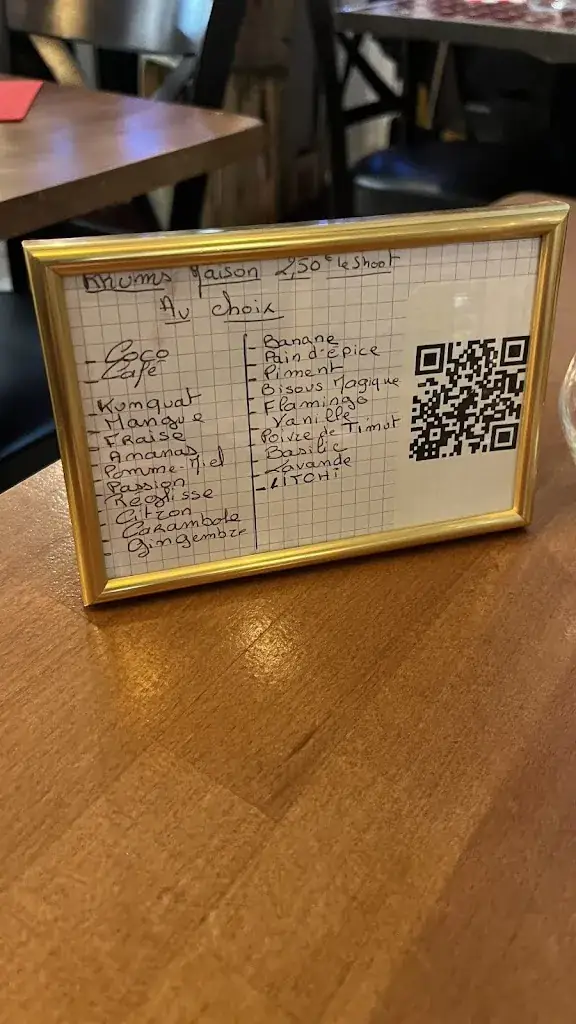 Rhums Maison 2,50€ le Shoot
Au choix
- Coco
- Café
- Kumquat
- Mangue
- Fraise
- Ananas
- Pomme-Miel
- Passion
- Réglisse
- Citron
- Carambole
- Gingembre
- Banane
- Pain d'épice
- Piment
- Bisous Magique
- Flamingo
- Vanille
- Poivre de Timut
- Basilic
- Lavande
- LITCHI